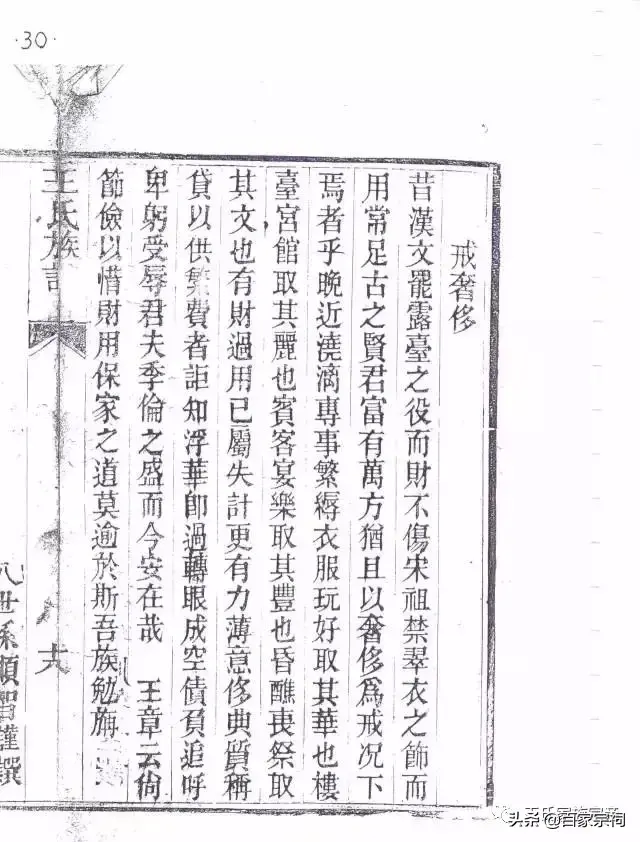 ·30·
戒奢侈
昔漢文罷露臺之役而財不傷宋祖禁翠衣之節而
用常足古之賢君富有萬方猶且以奢侈為戒况下
焉者乎晚近澆漓專事繁縟衣服玩好取其華也樓
臺宮館取其麗也賓客宴樂取其豐也昏醮喪祭取
其文也有財過用已屬失計更有力薄意侈典質稱
貸以供繁費者詎知浮華即過轉眼成空債負追呼
卑躬受辱君夫季倫之盛而今安在哉 王章云尙
節儉以惜財用保家之道莫逾於斯吾族勉旃
王氏族
八世孫順 謹撰
头条@百家宗祠